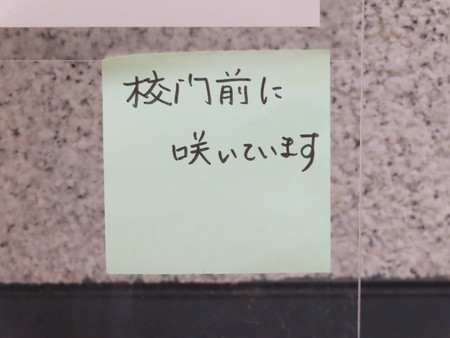 校门前に
咲いています